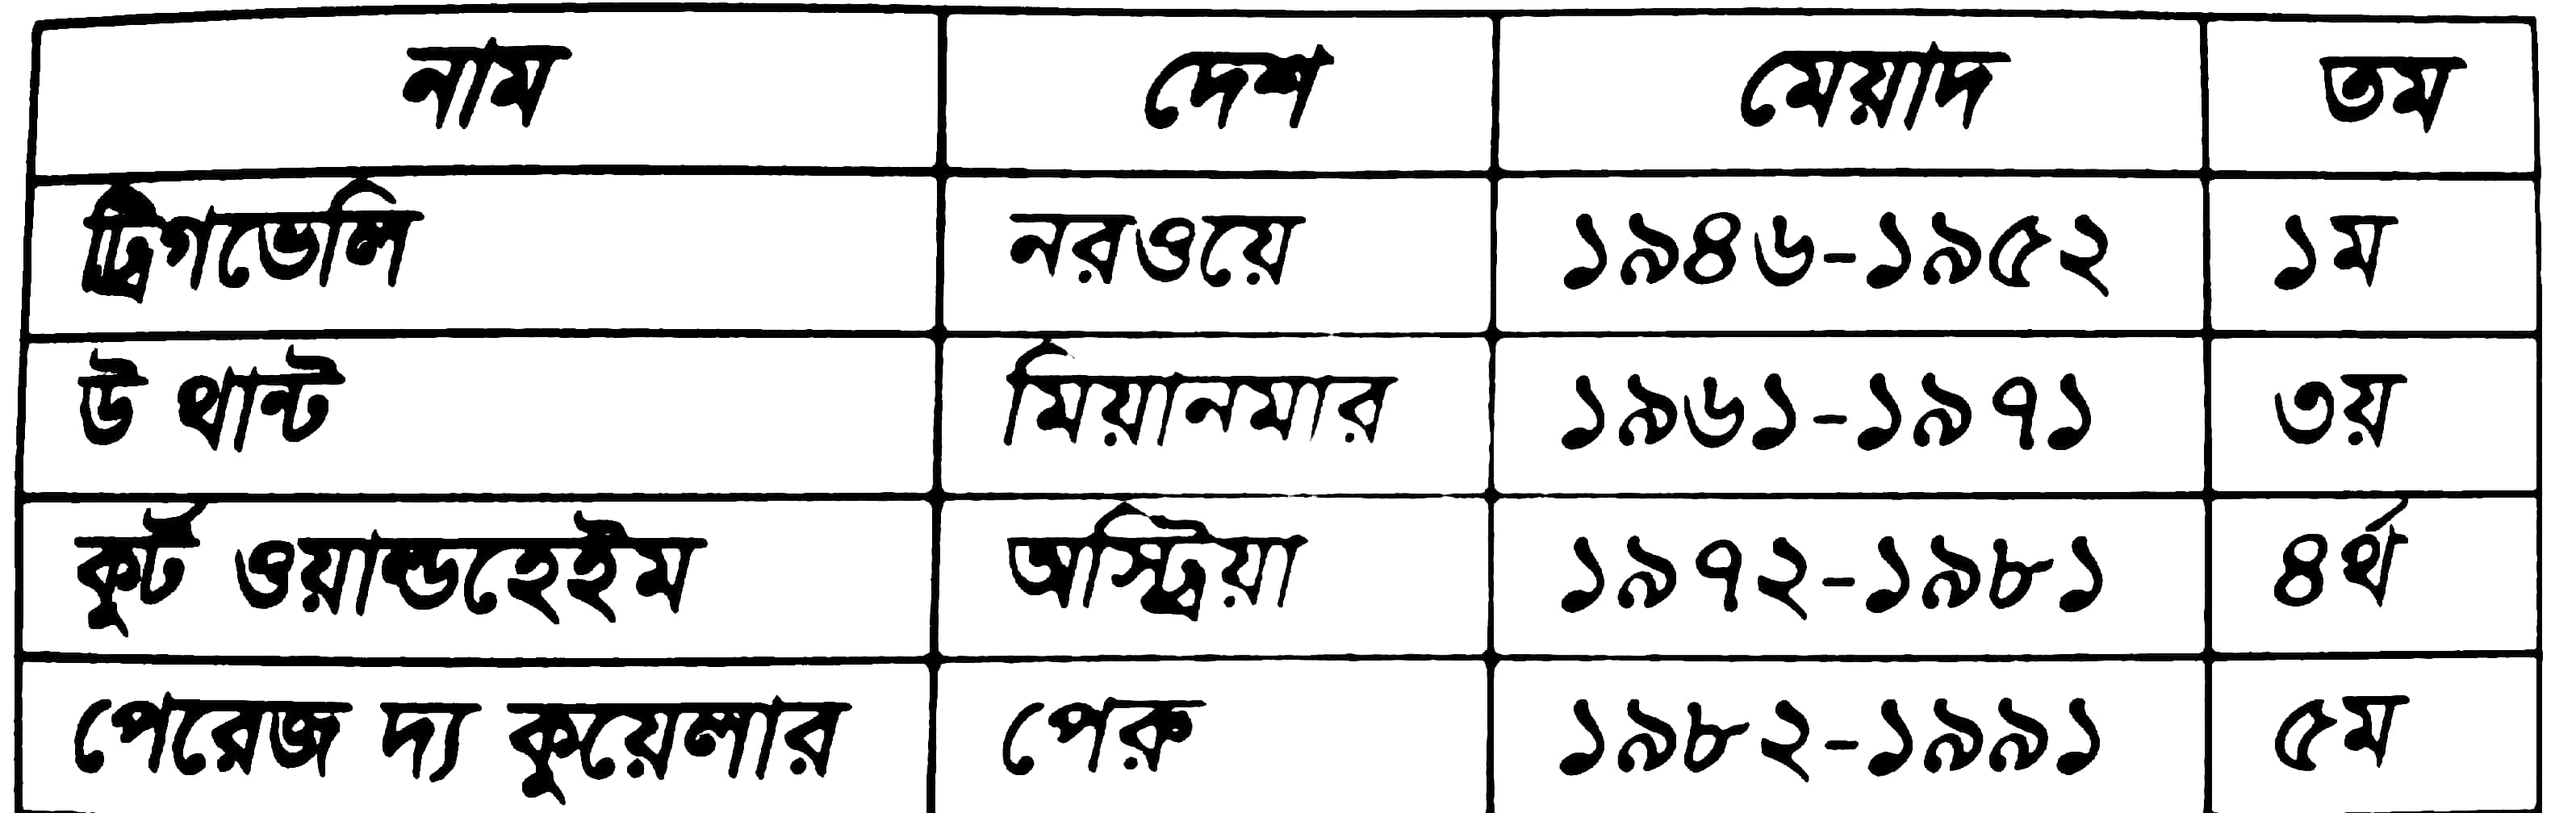 নাম দেশ মেয়াদ তম
ট্রিগভেলি নরওয়ে ১৯৪৬-১৯৫২ ১ম
উ থান্ট মিয়ানমার ১৯৬১-১৯৭১ ৩য়
কুর্ট ওয়াল্ডহেইম অস্ট্রিয়া ১৯৭২-১৯৮১ ৪র্থ
পেরেজ দ্য কুয়েলার পেরু ১৯৮২-১৯৯১ ৫ম